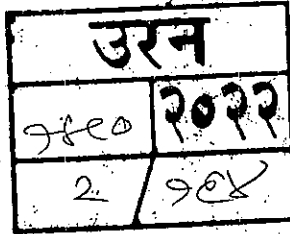 उरन
१४९० २०२२
2 / १९४